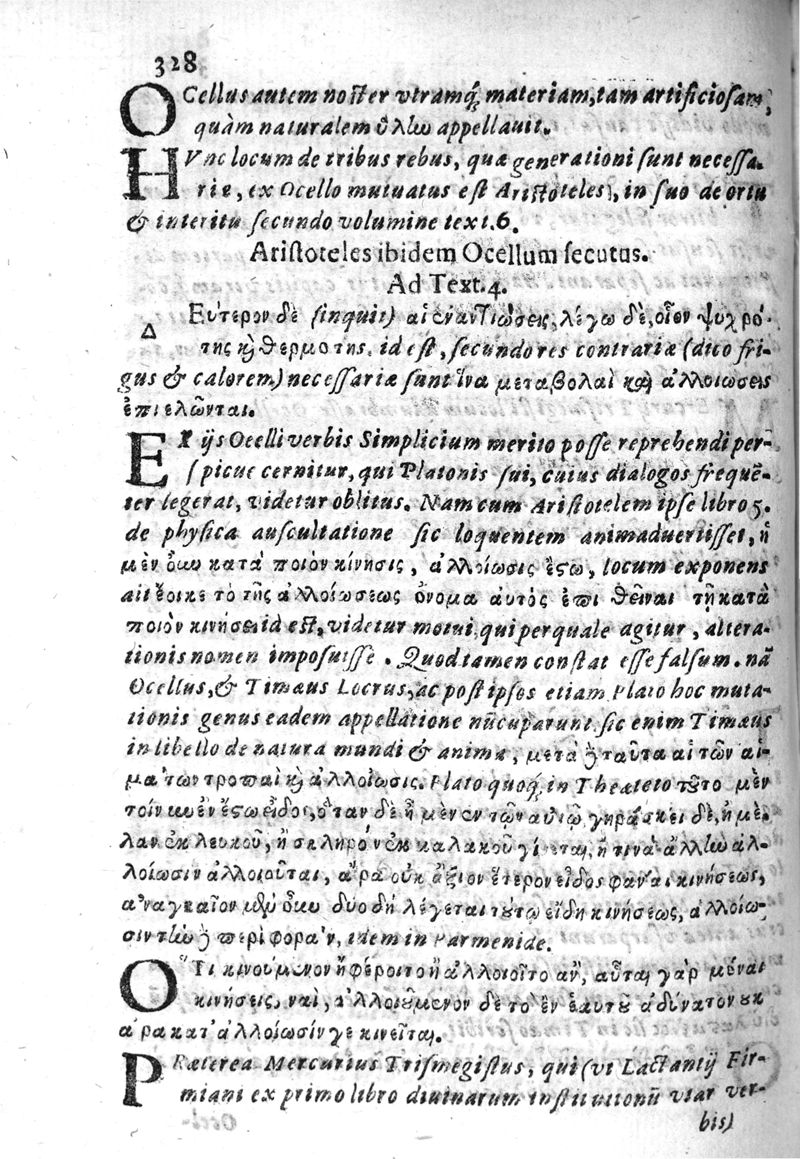 328
OCellus autem noster vtramq́; materiam, tam artificiosam,
quàm naturalem ὕλίω appellauit.
HVnc locum de tribus rebus, quæ generationi sunt necessa-
riæ, ex Ocello mutuatus est Aristoteles, in suo de ortu
& interitu secundo volumine text. 6.
Aristoteles ibidem Ocellum secutus.
Ad Text. 4.
Δεύτερον δὲ (inquit) αἱ ἐναντιώσεις, λέγω δὲ, οἷον ψυχρό-
της καὶ θερμότης. id est, secundo res contrariæ (dico fri-
gus & calorem) necessariæ sunt ἵνα μεταβολαὶ καὶ ἀλλοιώσεις
ἐπιελῶνται.
EX ijs Ocelli verbis Simplicium merito posse reprehendi per-
spicue cernitur, qui Platonis sui, cuius dialogos frequẽ-
ter legerat, videtur oblitus. Nam cum Aristotelem ipse libro 5.
de physica auscultatione sic loquentem animaduertisset, ἡ
μὲν οὖν κατὰ ποιὸν κίνησις, ἀλλοίωσις ἔστω, locum exponens
ait ἔοικε τὸ τῆς ἀλλοιώσεως ὄνομα αὐτὸς ἐπιθεῖναι τῇ κατὰ
ποιὸν κινήσει id est, videtur motui, qui per quale agitur, altera-
tionis nomen imposuisse. Quod tamen constat esse falsum. nã
Ocellus, & Timæus Locrus, ac post ipsos etiam Plato hoc muta-
tionis genus eadem appellatione nũcuparunt sic enim Timæus
in libello de natura mundi & anima, μετὰ δὲ ταῦτα αἱ τῶν αἱ-
μάτων τροπαὶ καὶ ἀλλοίωσις. Plato quoq́; in Theæteto τοῦτο μὲν
τοίνυν ἓν ἔστω εἶδος, ὅταν δὲ ᾖ μὲν ἐν τῶν αὐτῷ γηράσκει δὲ, ἢ μέ-
λαν ἐκ λευκοῦ, ἢ σκληρὸν ἐκ καλακοῦ γίνεται, ἢ τινὰ ἄλλην ἀλ-
λοίωσιν ἀλλοιοῦται, ἆρα οὐκ ἄξιον ἕτερον εἶδος φάναι κινήσεως,
ἀναγκαῖον μὲν οὖν δύο δὴ λέγεται τούτω εἴδη κινήσεως, ἀλλοίω-
σιν τὴν δὲ περιφοράν, idem in Parmenide.
ὍΤι κινούμενον ἢ φέροιτο ἢ ἀλλοιοῖτο ἂν, αὗται γὰρ μόναι
κινήσεις, ναὶ, ἀλλοιούμενον δὲ τὸ ἓν ἑαυτοῦ ἀδύνατον οὐκ
ἄρα κατ' ἀλλοίωσίν γε κινεῖται.
PRæterea Mercurius Trismegistus, qui (vt Lactantij Fir-
miani ex primo libro diuinarum institutionũ vtar ver-
bis)